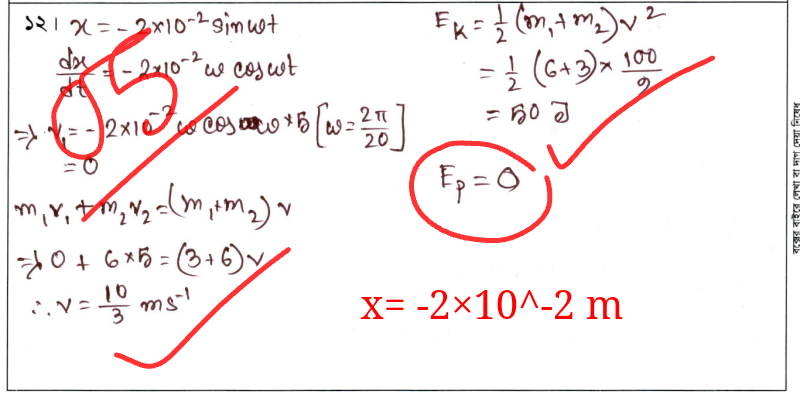 ১২। x = -2×10⁻² sin ωt
dx/dt = -2×10⁻² ω cos ωt
⇒ v₁ = -2×10⁻² ω cos ω×5 [ω = 2π/20]
= 0
m₁v₁ + m₂v₂ = (m₁+m₂) v
⇒ 0 + 6×5 = (3+6) v
∴ v = 10/3 ms⁻¹
05
E_K = 1/2 (m₁+m₂) v²
= 1/2 (6+3) × 100/9
= 50 J
E_p = 0
x= -2×10^-2 m
বক্সের বাইরে লেখা বা দাগ দেয়া নিষেধ